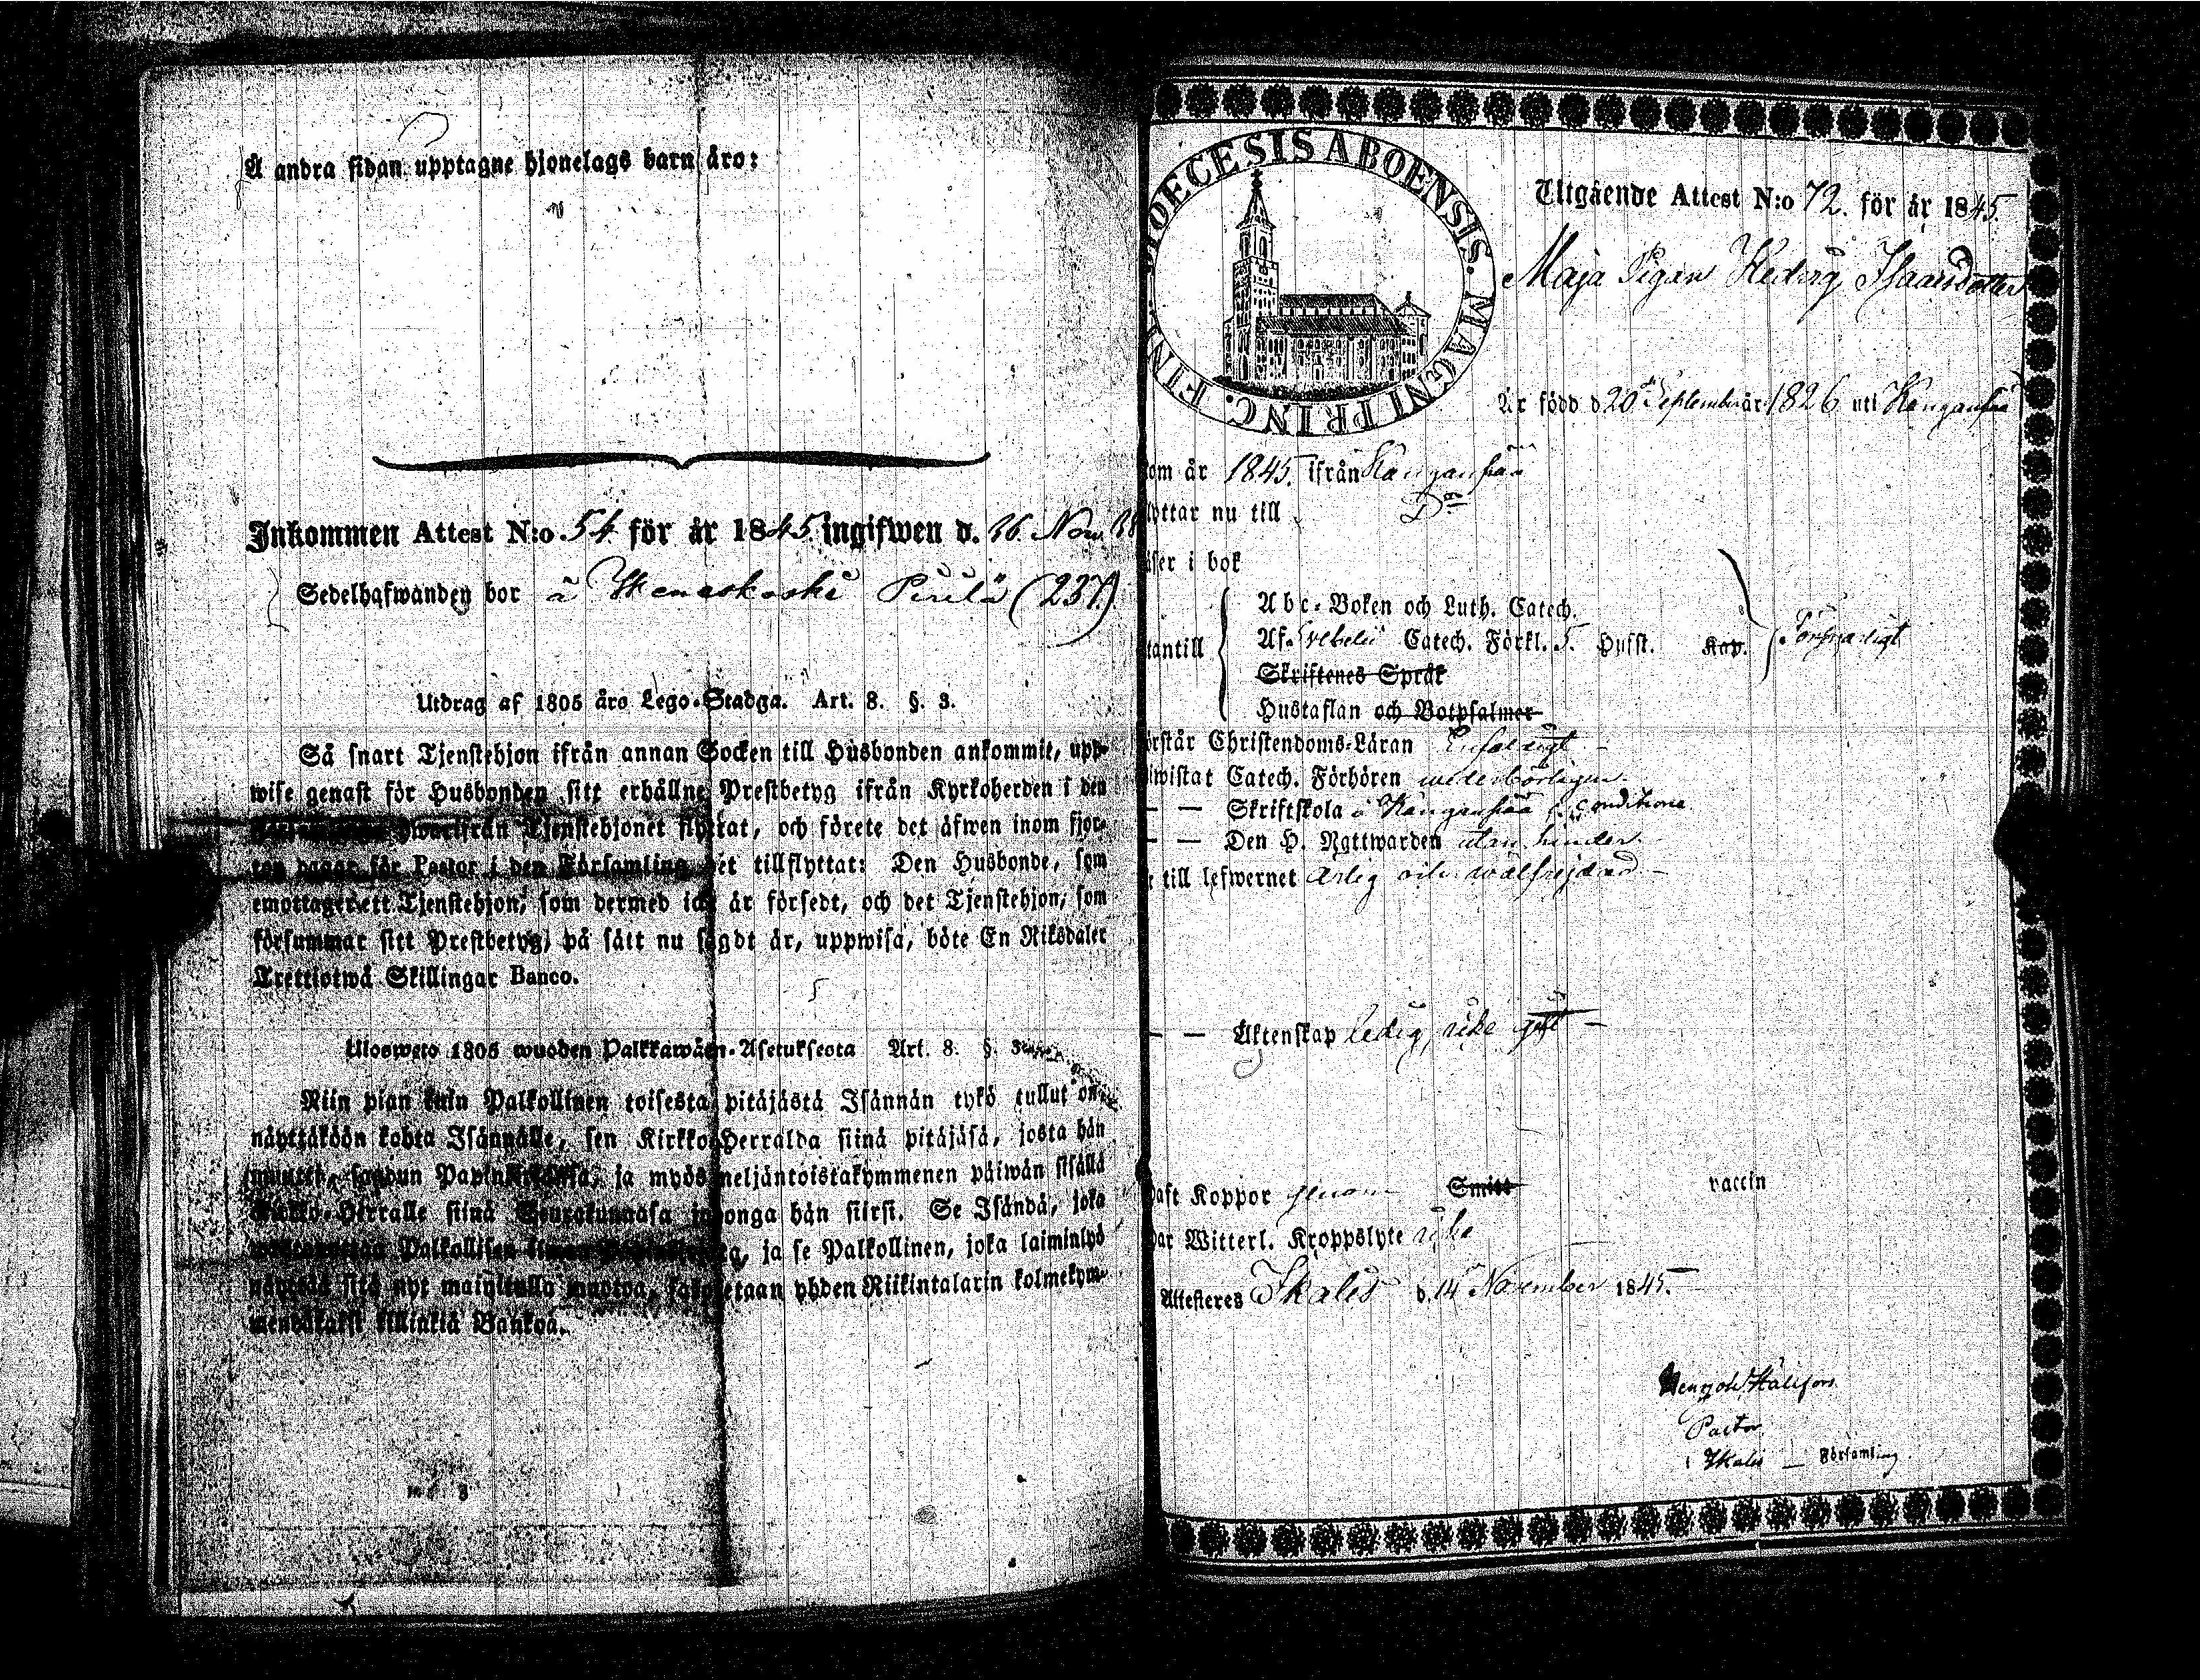 Å andra sidan upptagne hjonelags barn äro:
Inkommen Attest N:o 54 för år 1845 ingifwen d. 26 Nov.
Sedelhafwanden bor å Heneskoski Pirilä (237)
Utdrag af 1805 års Lego-Stadga. Art. 8. §. 3.
Så snart Tjenstehjon ifrån annan Socken till Husbonden ankommit, upp-
wise genast för Husbonden sitt erhållne Prestbetyg ifrån Kyrkoherden i den
hwarifrån Tjenstehjonet flyttat, och förete det äfwen inom fjor-
ton dagar för Pastor i den Församling det tillflyttat: Den Husbonde, som
emottager ett Tjenstehjon, som dermed icke är försedt, och det Tjenstehjon, som
försummar sitt Prestbetyg, på sätt nu sagdt är, uppwisa, böte En Riksdaler
Trettiotwå Skillingar Banco.
Ulosweto 1805 wuoden Palkkawäen-Asetuksesta Art. 8. §. 3.
Niin pian kuin Palkollinen toisesta pitäjästä Isännän tykö tullut on
näyttäköön kohta Isännälle, sen Kirkko-Herralda siinä pitäjäsä, josta hän
muutti, saadun Papinkirjansa, ja myös neljäntoistakymmenen päiwän sisällä
Kirkko-Herralle siinä Seurakunnasa johonga hän siirsi. Se Isändä, joka
Palkollisen ilman ja se Palkollinen, joka laiminlyö
näyttää sitä nyt mainitulla muotoa, sakotetaan yhden Riikintalarin kolmekym-
mendäkaksi killinkiä Bankoa.
DIOECESIS ABOENSIS. MAGNI PRINC. FINL.
Utgående Attest N:o 72. för år 1845.
Maja Pigan Hedvig Isaaksdotter
Är född d 20 September år 1826 uti Kangansaa
om år 1845. ifrån Kangansaa
lyttar nu till Do
äser i bok
tantill
Abc-Boken och Luth. Catech.
Af Svebelii Catech. Förkl. 5. Husst. Kap. Försvarligt
Skriftenes Språk
Hustaflan och Botpsalmer
örstår Christendoms-Läran Enfaldigt
iwistat Catech. Förhören wederbörligen
— — Skriftskola i Kangansaa conditione
— — Den H. Nattwarden utan hinder.
till lefwernet ärlig och wälfrejdad —
— — Äktenskap ledig, icke gift —
aft Koppor genom Smitt vaccin
ar Witterl. Kroppslyte icke
Attesteres Ikalis d. 14 November 1845.
Henr Joh Hällfors
Pastor
i Ikalis — Församling